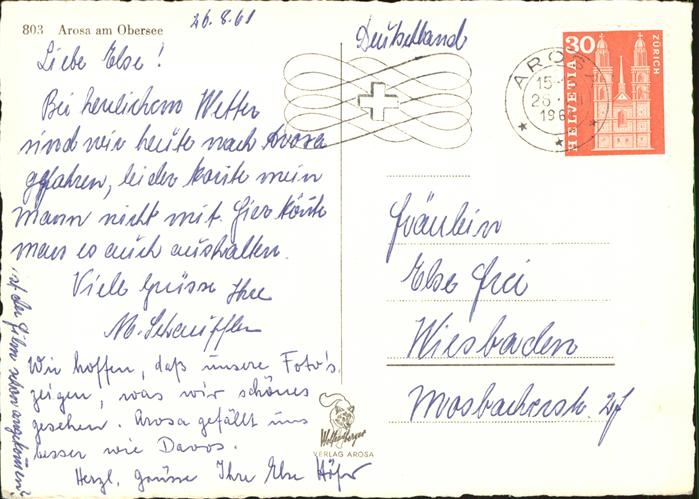 803 Arosa am Obersee
26.8.61
Liebe Else!
Bei herrlichem Wetter
sind wir heute nach Arosa
gefahren, leider konnte mein
Mann nicht mit. Hier könnte
man es auch aushalten.
Viele Grüsse Ihre
M. Schäuffler
Wir hoffen, daß unsere Foto's
zeigen, was wir schönes
gesehen. Arosa gefällt uns
besser wie Davos.
Herzl. Grüsse Ihre Else Höfer
ist der Film schon angekommen?
Deutschland
AROSA
15-
26
196
HELVETIA 30
ZÜRICH
Fräulein
Else Frei
Wiesbaden
Mosbacherstr.
VERLAG AROSA